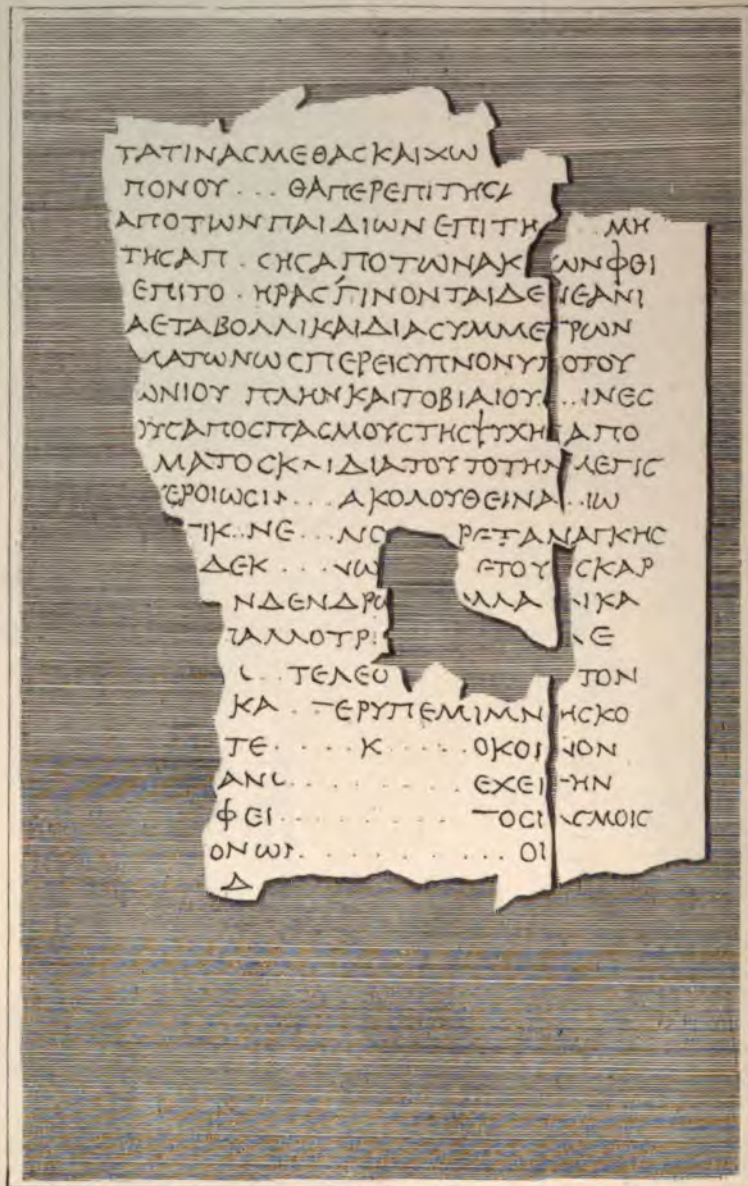 ΤΑΤΙΝΑϹΜΕΘΑϹΚΑΙΧΩ
ΠΟΝΟΥ . . . ΘΑΠΕΡΕΠΙΤΗϹ
ΑΠΟΤΩΝΠΑΙΔΙΩΝΕΠΙΤΗ ΜΗ
ΤΗϹΑΠ . ϹΗϹΑΠΟΤΩΝΑΚ ΩΝΦΘΙ
ΕΠΙΤΟ . ΗΡΑϹΓΙΝΟΝΤΑΙΔΕ ΝΕΑΝΙ
ΑΕΤΑΒΟΛΛΙΚΑΙΔΙΑϹΥΜΜΕΤΡΩΝ
ΜΑΤΩΝΩϹΠΕΡΕΙϹΥΠΝΟΝΥΠΟΤΟΥ
ΩΝΙΟΥ ΠΛΗΝΚΑΙΤΟΒΙΑΙΟΥ . . ΙΝΕϹ
ΟΥϹΑΠΟϹΠΑϹΜΟΥϹΤΗϹΨΥΧΗϹ ΑΠΟ
ΜΑΤΟϹΚΑΙΔΙΑΤΟΥΤΟΤΗΝ ΛΕΠΙϹ
ΕΡΟΙΩϹΙΝ . . . ΑΚΟΛΟΥΘΕΙΝΑ . . ΙΩ
ΤΙΚ . ΝΕ . . . ΝΟ ΡΕΤΑΝΑΓΚΗϹ
ΔΕΚ . . . ΝΩ ΕΤΟΥ ϹΚΑΡ
ΝΔΕΝΔΡΩ ΛΛΑ ΝΙΚΑ
ΑΛΛΟΤΡΙ Ε
. . ΤΕΛΕΟ ΤΟΝ
ΚΑ . ΤΕΡΥΠΕΜΙΜΝΗϹΚΟ
ΤΕ . . . . Κ . . . . . ΟΚΟΙΝΟΝ
ΑΝ . . . . . . . . . ΕΧΕΙ ΤΗΝ
ΦΕΙ . . . . . . . . . ΤΟϹΙ ϹΜΟΙϹ
ΟΝΩ . . . . . . . . . . . ΟΙ
Δ